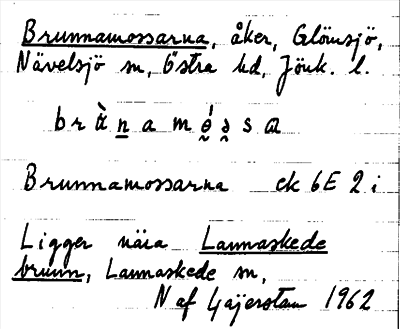 Brunnamossarna, åker, Glömsjö,
Nävelsjö sn, Östra hd, Jönk. l.
brὰn̲amó̰ə̰sɑ
Brunnamossarna ek 6E 2 i
Ligger nära Lannaskede
brunn, Lannaskede sn,
N af Gajerstam 1962